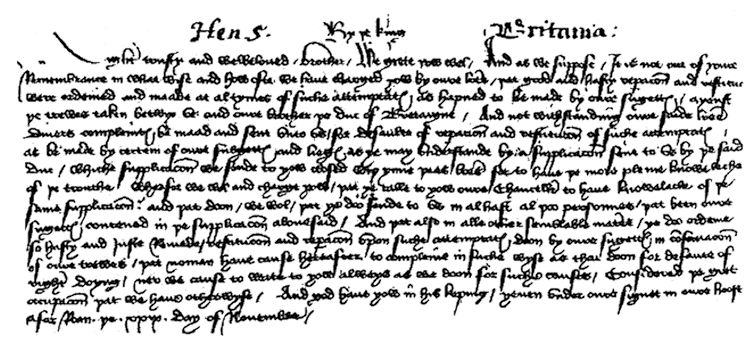 Hen 5. By þe king Britania:
trusty and welbeloved brother / We grete yow wel / And as we suppose / It is not out of youre
Remembrance in what wyse and how ofte we have charged yow by oure lettres / þat good and hasty reparacion and restitucion
were ordeined and maade at al tymes of suche attemptats / as hapned to be made by oure suggettz / ayenst
þe trewes taken betwyx us and oure brother þe duc of Bretaigne / And not withstanding oure saide lettres
divers complaintes be maad and sent unto us / for defaulte of reparacion and restitucion of suche attemptats /
as be made by certein of oure suggettz and lieges / as ye may understande by a supplicacion sent to us by þe said
duc / whiche supplicacion we sende to yow closed wiþynne þees lettres for to have þe more pleine knoweleche
of þe trouthe / Wherfor we wol and charge yow / þat ye calle to yow oure Chanceller to have knowalache of þe
same supplicacion: and þat doon / we wol / þat ye do sende to us in al hast al þoo personnes / þat been oure
suggettz contened in þe supplicacion abouesaid / And þat also in alle other semblable matere / ye do ordene
so hasty and Juste Remede / restitucion and reparacion upon suche attemptats / doon by oure suggettz in conservacion
of oure trewes / þat noman have cause hereafter / to compleine in suche wyse as thei doon for defaute of
right doyng / ner we cause to write to yow alweys as we doon for suche causes / Considered þe gret
occupacion þat we have otherwyse / And god have yow in his keping / yeven under oure signet in oure hoost
afor Roan . þe . xxix . day of Novembre /